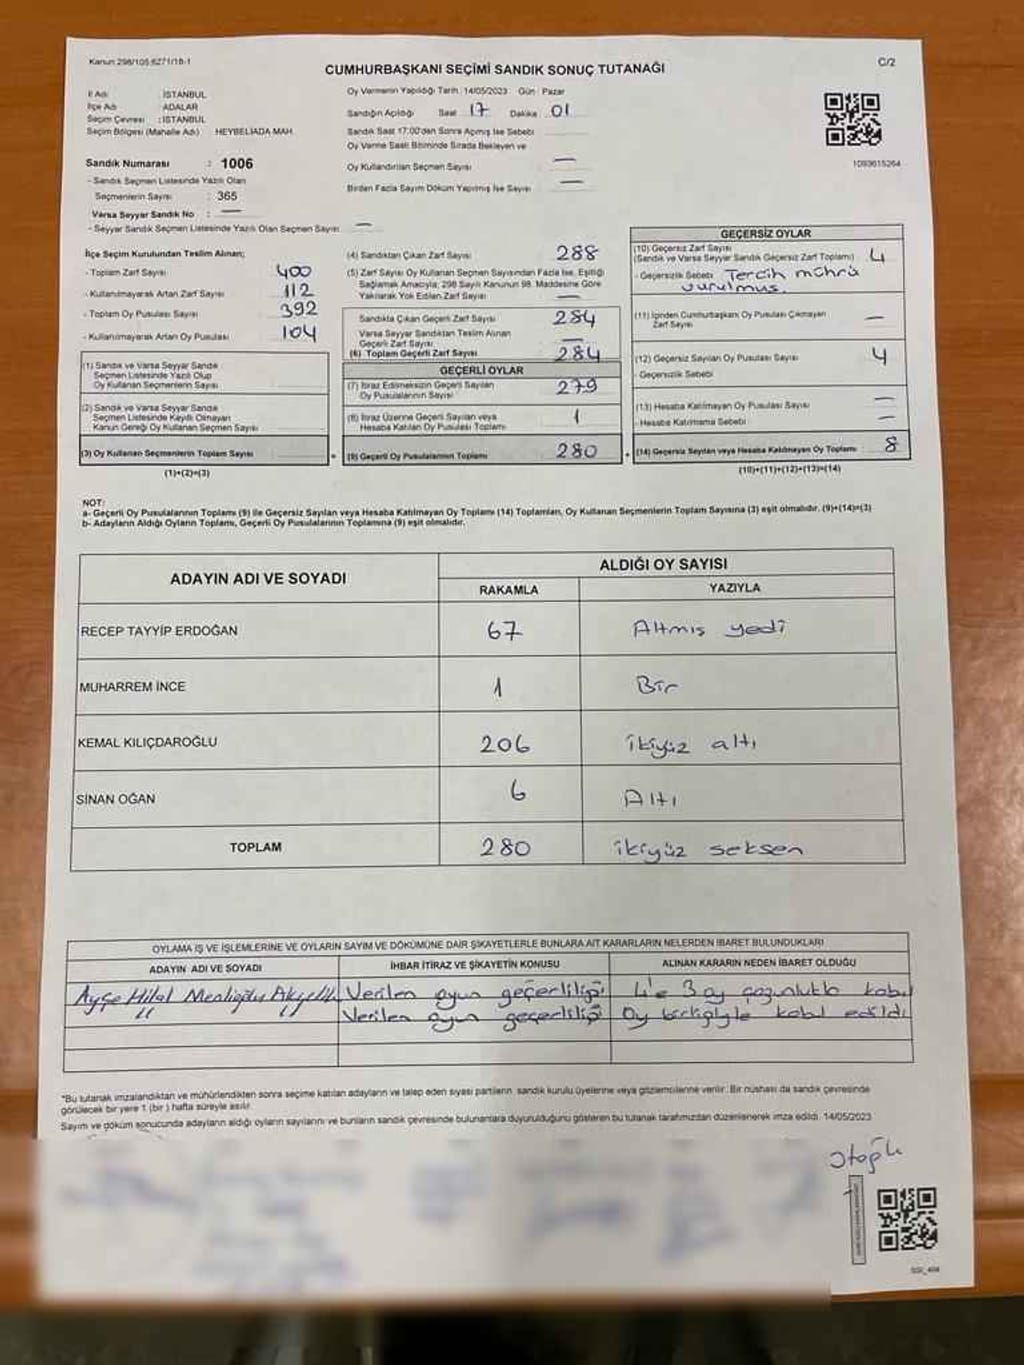 Kanun:298/105;6271/18-1
C/2
CUMHURBAŞKANI SEÇİMİ SANDIK SONUÇ TUTANAĞI
İl Adı : İSTANBUL
İlçe Adı : ADALAR
Seçim Çevresi : İSTANBUL
Seçim Bölgesi (Mahalle Adı) HEYBELİADA MAH.
Sandık Numarası : 1006
- Sandık Seçmen Listesinde Yazılı Olan
Seçmenlerin Sayısı : 365
Varsa Seyyar Sandık No : —
- Seyyar Sandık Seçmen Listesinde Yazılı Olan Seçmen Sayısı —
Oy Vermenin Yapıldığı Tarih: 14/05/2023 Gün: Pazar
Sandığın Açıldığı Saat 17 Dakika 01
Sandık Saat 17:00'den Sonra Açmış İse Sebebi
Oy Verme Saati Bitiminde Sırada Bekleyen ve
Oy Kullandırılan Seçmen Sayısı —
Birden Fazla Sayım Döküm Yapılmış İse Sayısı —
1093615264
İlçe Seçim Kurulundan Teslim Alınan;
- Toplam Zarf Sayısı 400
- Kullanılmayarak Artan Zarf Sayısı 112
- Toplam Oy Pusulası Sayısı 392
- Kullanılmayarak Artan Oy Pusulası 104
(1) Sandık ve Varsa Seyyar Sandık
Seçmen Listesinde Yazılı Olup
Oy Kullanan Seçmenlerin Sayısı
(2) Sandık ve Varsa Seyyar Sandık
Seçmen Listesinde Kayıtlı Olmayan
Kanun Gereği Oy Kullanan Seçmen Sayısı
(3) Oy Kullanan Seçmenlerin Toplam Sayısı
(1)+(2)=(3)
(4) Sandıktan Çıkan Zarf Sayısı 288
(5) Zarf Sayısı Oy Kullanan Seçmen Sayısından Fazla İse, Eşitliği
Sağlamak Amacıyla; 298 Sayılı Kanunun 98. Maddesine Göre
Yakılarak Yok Edilen Zarf Sayısı —
Sandıkta Çıkan Geçerli Zarf Sayısı 284
Varsa Seyyar Sandıktan Teslim Alınan
Geçerli Zarf Sayısı —
(6) Toplam Geçerli Zarf Sayısı 284
GEÇERLİ OYLAR
(7) İtiraz Edilmeksizin Geçerli Sayılan
Oy Pusulalarının Sayısı 279
(8) İtiraz Üzerine Geçerli Sayılan veya
Hesaba Katılan Oy Pusulası Toplamı 1
(9) Geçerli Oy Pusulalarının Toplamı 280
GEÇERSİZ OYLAR
(10) Geçersiz Zarf Sayısı
(Sandık ve Varsa Seyyar Sandık Geçersiz Zarf Toplamı) 4
- Geçersizlik Sebebi Tercih mührü
vurulmuş.
(11) İçinden Cumhurbaşkanı Oy Pusulası Çıkmayan
Zarf Sayısı —
(12) Geçersiz Sayılan Oy Pusulası Sayısı 4
- Geçersizlik Sebebi
(13) Hesaba Katılmayan Oy Pusulası Sayısı —
- Hesaba Katılmama Sebebi —
(14) Geçersiz Sayılan veya Hesaba Katılmayan Oy Toplamı 8
(10)+(11)+(12)+(13)=(14)
NOT:
a- Geçerli Oy Pusulalarının Toplamı (9) ile Geçersiz Sayılan veya Hesaba Katılmayan Oy Toplamı (14) Toplamları, Oy Kullanan Seçmenlerin Toplam Sayısına (3) eşit olmalıdır. (9)+(14)=(3)
b- Adayların Aldığı Oyların Toplamı, Geçerli Oy Pusulalarının Toplamına (9) eşit olmalıdır.
ADAYIN ADI VE SOYADI ALDIĞI OY SAYISI
RAKAMLA YAZIYLA
RECEP TAYYİP ERDOĞAN 67 Altmış yedi
MUHARREM İNCE 1 Bir
KEMAL KILIÇDAROĞLU 206 ikiyüz altı
SİNAN OĞAN 6 Altı
TOPLAM 280 ikiyüz seksen
OYLAMA İŞ VE İŞLEMLERİNE VE OYLARIN SAYIM VE DÖKÜMÜNE DAİR ŞİKAYETLERLE BUNLARA AİT KARARLARIN NELERDEN İBARET BULUNDUKLARI
ADAYIN ADI VE SOYADI İHBAR İTİRAZ VE ŞİKAYETİN KONUSU ALINAN KARARIN NEDEN İBARET OLDUĞU
Ayşe Hilal Verilen oyun geçerliliği 4'e 3 oy çoğunlukla kabul
" " Verilen oyun geçerliliği Oy birliğiyle kabul edildi
*Bu tutanak imzalandıktan ve mühürlendikten sonra seçime katılan adayların ve talep eden siyasi partilerin sandık kurulu üyelerine veya gözlemcilerine verilir. Bir nüshası da sandık çevresinde
görülecek bir yere 1 (bir) hafta süreyle asılır.
Sayım ve döküm sonucunda adayların aldığı oyların sayılarını ve bunların sandık çevresinde bulunanlara duyurulduğunu gösteren bu tutanak tarafımızdan düzenlenerek imza edildi. 14/05/2023